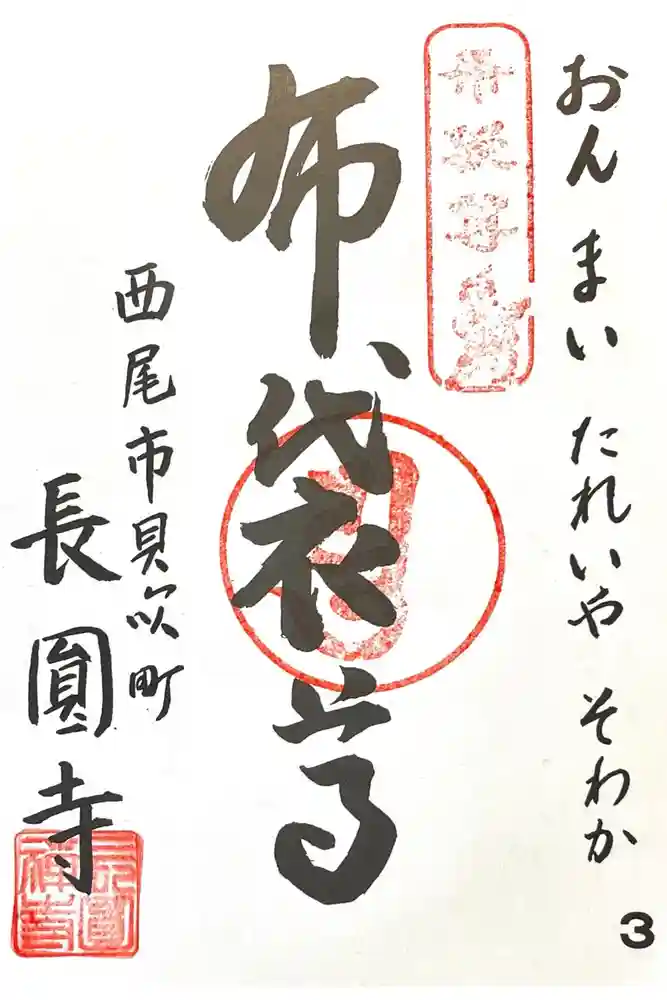 おん まい たれいや そわか
布袋尊
西尾市貝吹町
長圓寺
3